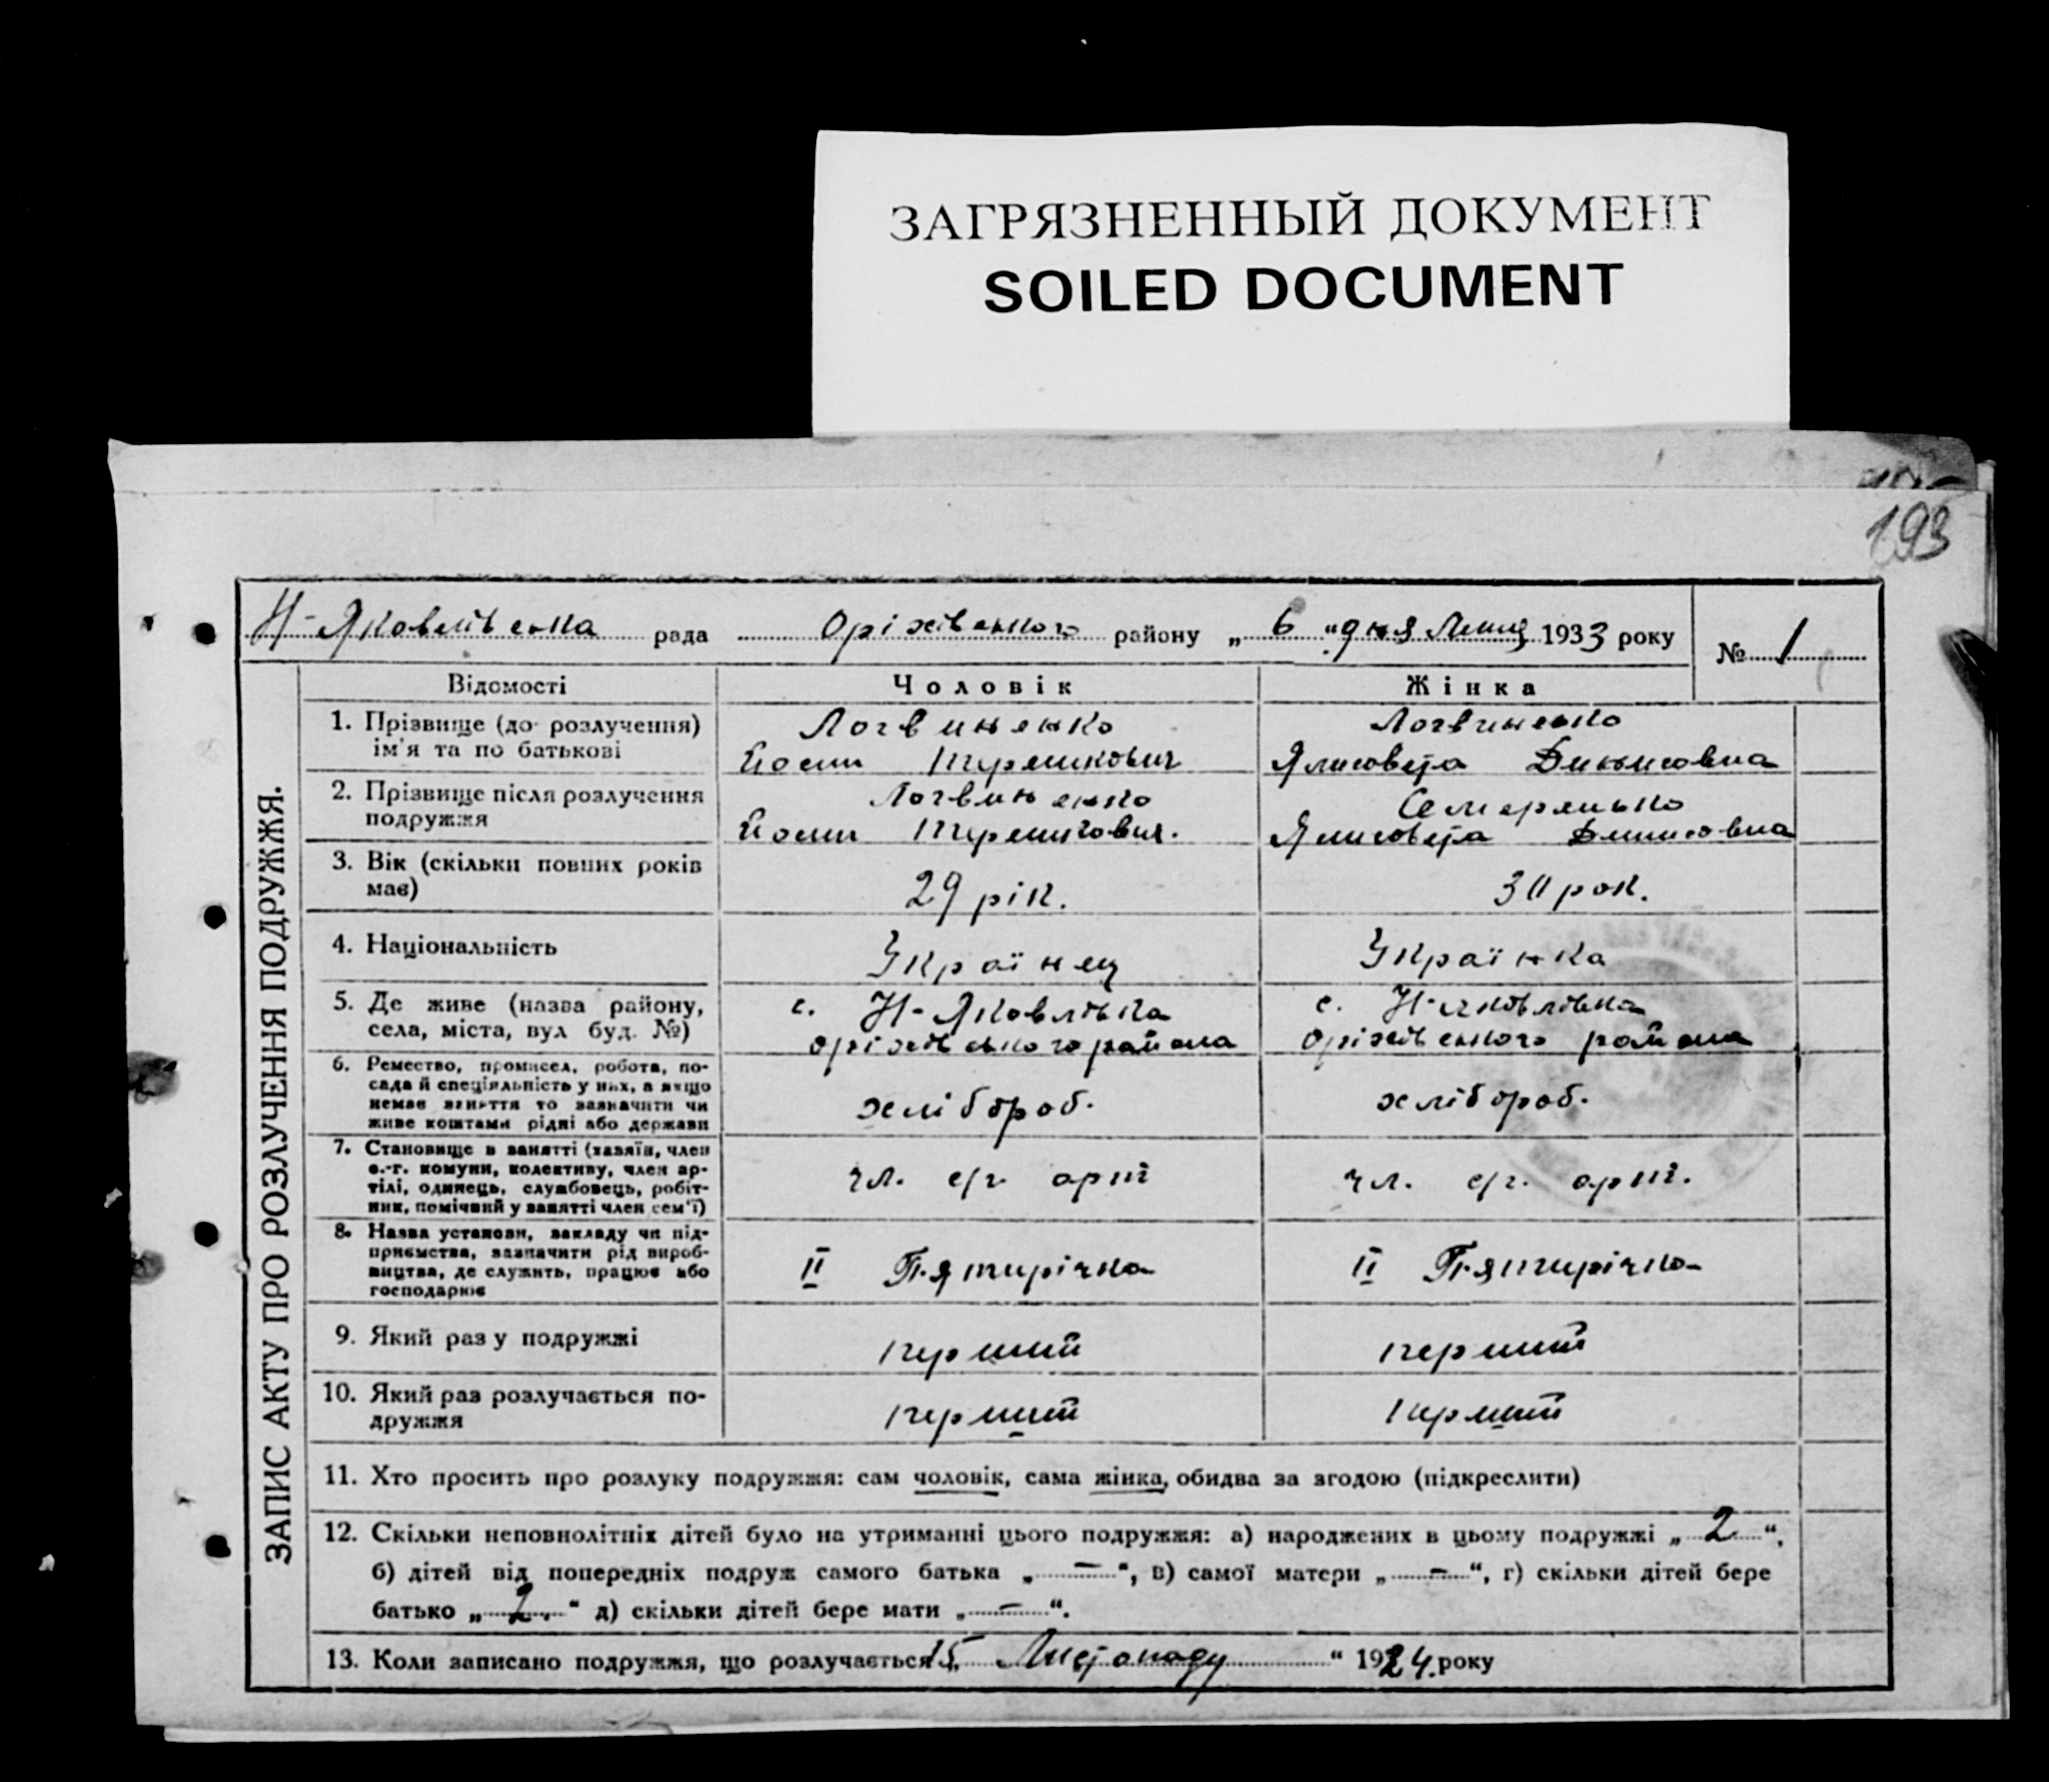 ЗАГРЯЗНЕННЫЙ ДОКУМЕНТ
SOILED DOCUMENT
193
Н-Яковлівська рада Оріхівського району „ 6 “ дня Липця 1933 року № 1
ЗАПИС АКТУ ПРО РОЗЛУЧЕННЯ ПОДРУЖЖЯ.
Відомості Чоловік Жінка
1. Прізвище (до розлучення) Логвиненко Логвиненко
ім'я та по батькові Йосип Ялисовета Динисовна
2. Прізвище після розлучення Логвиненко
подружжя Йосип Ялисовета Динисовна
3. Вік (скільки повних років
має) 29 рік. рок.
4. Національність Українец Українка
5. Де живе (назва району, с. Н-Яковлівка с. Н-Яковлівка
села, міста, вул буд. №) Оріхівського района Оріхівського района
6. Ремество, промисел, робота, по-
сада й спеціяльність у них, а якщо
немає заняття то зазначити чи хлібороб. хлібороб.
живе коштами рідні або держави
7. Становище в занятті (хазяїн, член
с.-г. комуни, колективу, член ар-
тілі, одинець, службовець, робіт- чл. с/г. арт чл. с/г. арт.
ник, помічний у занятті член сем'ї)
8. Назва установи, закладу чи під-
приємства, зазначити рід вироб-
ництва, де служить, працює або II П-ятирічка II П-ятирічка
господарює
9. Який раз у подружжі перший перший
10. Який раз розлучається по- перший перший
дружжя
11. Хто просить про розлуку подружжя: сам чоловік, сама жінка, обидва за згодою (підкреслити)
12. Скільки неповнолітніх дітей було на утриманні цього подружжя: а) народжених в цьому подружжі „ 2 “,
б) дітей від попередніх подруж самого батька „ — “, в) самої матери „ — “, г) скільки дітей бере
батько „ 2. “ д) скільки дітей бере мати „ — “.
13. Коли записано подружжя, що розлучається „ 15 Листопаду “ 1924. року